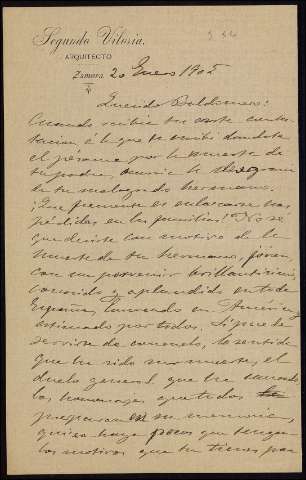 Segundo Viloria.
ARQUITECTO
Zamora 20 Enero 1905
Querido Baldomero:
Cuando recibía tu carta contes-
tación á la que te escribí dándote
el pésame por la muerte de
tu padre, ocurrió la desgracia
de tu malogrado hermano.
¡Que frecuente es enlazarse las
pérdidas en las familias! No sé
que decirte con motivo de la
muerte de tu hermano, joven,
con un porvenir brillantísimo,
conocido y aplaudido en toda
España, llamado en América y
estimado por todos. Si puede
servirte de consuelo, lo sentida
que ha sido su muerte, el
duelo general que ha causado
los homenajes que todos
preparan en su memoria,
quien haya pocos que tengan
los motivos que tu tienes para